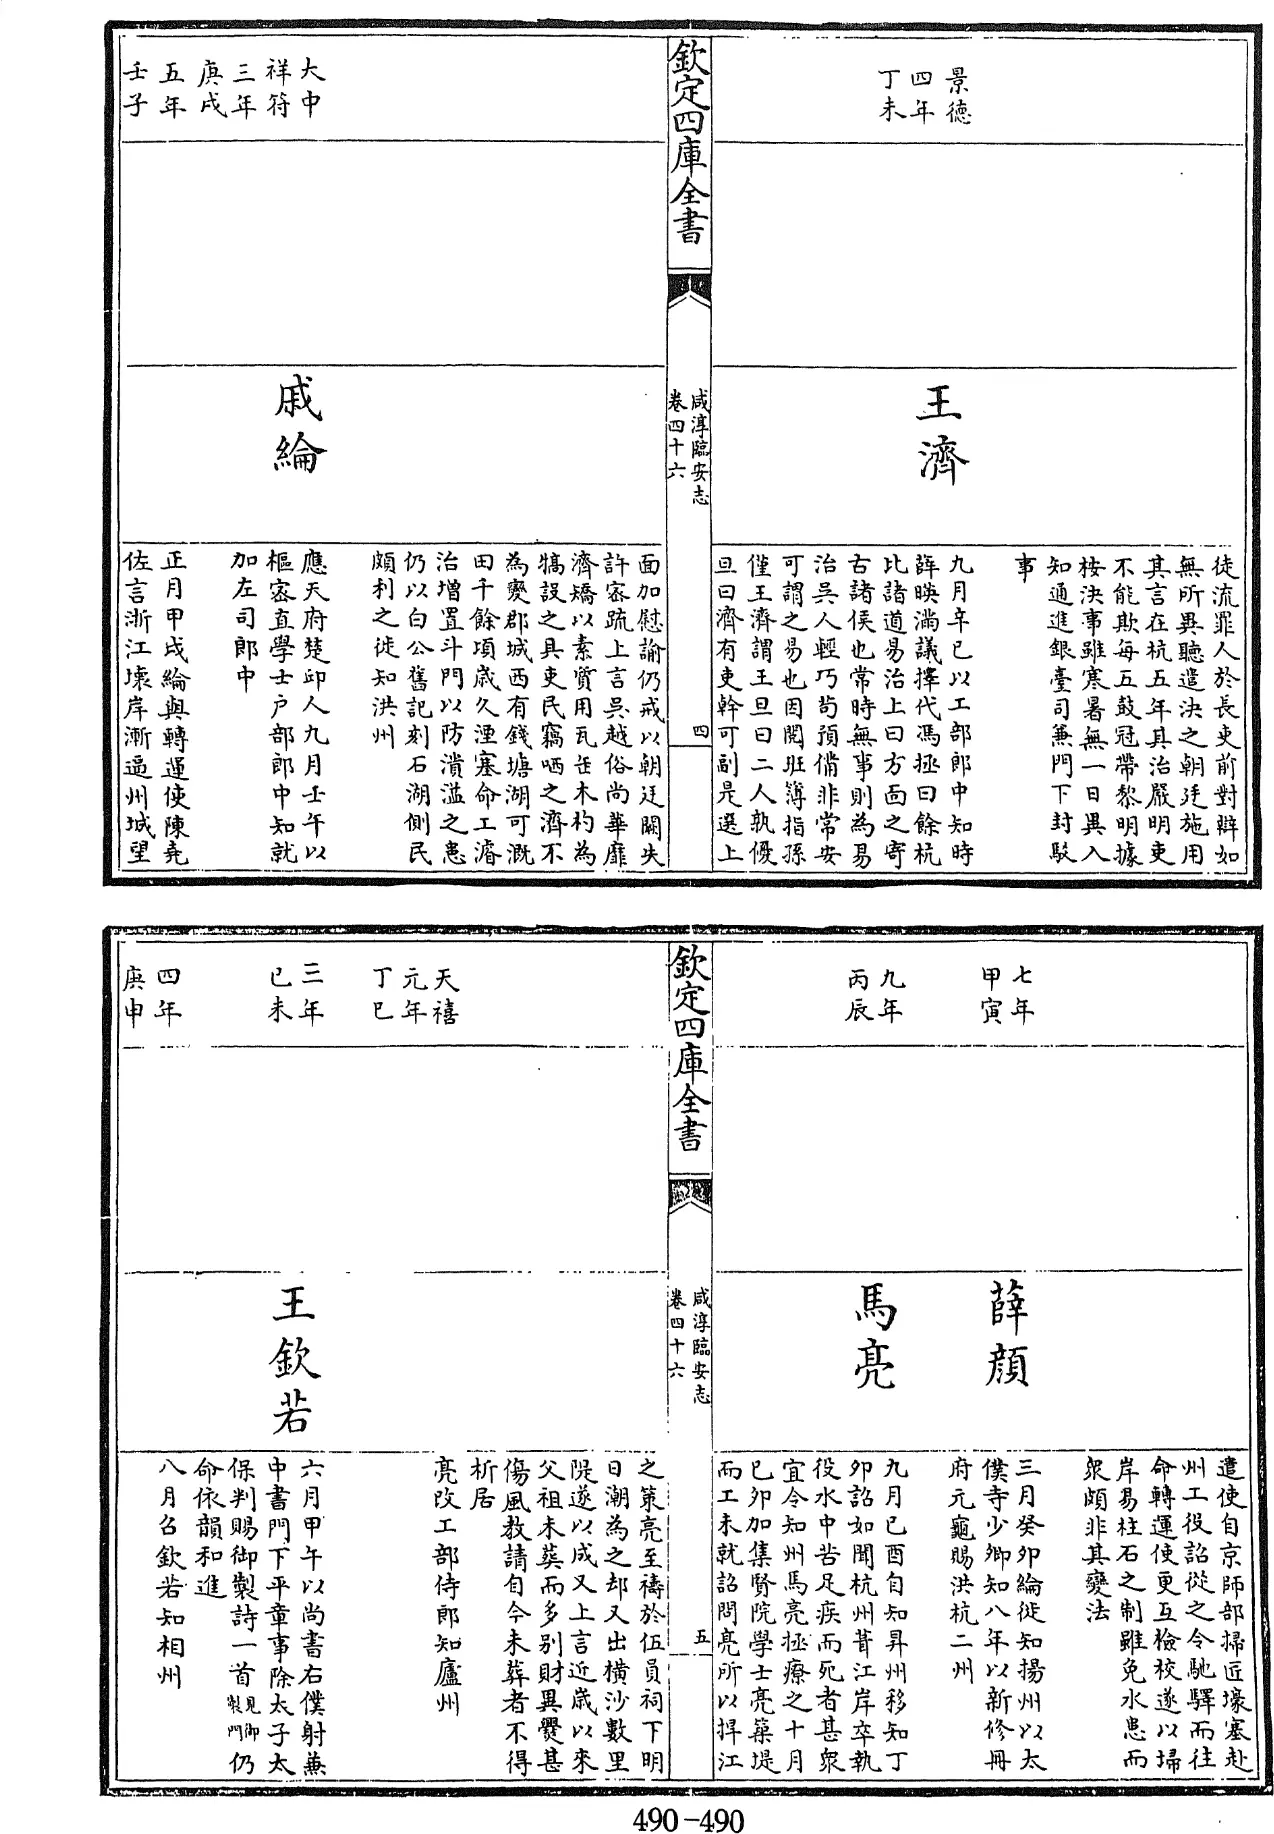 徒流罪人於長吏前對辯如
無所異聽遣決之朝廷施用
其言在杭五年其治嚴明吏
不能欺每五鼓冠帶黎明據
桉決事雖寒暑無一日異入
知通進銀臺司兼門下封駮
事
景德
四年
丁未
王濟
九月辛已以工部郎中知時
薛暎滿議擇代馮拯曰餘杭
比諸道易治上曰方面之寄
古諸侯也常時無事則為易
治吴人輕巧茍預備非常安
可謂之易也因閲班簿指孫
僅王濟謂王旦曰二人孰優
旦曰濟有吏幹可副是選上
欽定四庫全書
咸淳臨安志
卷四十六
四
面加慰諭仍戒以朝廷闕失
許密疏上言吴越俗尚華靡
濟矯以素質用瓦缶木杓為
犒設之具吏民竊哂之濟不
為變郡城西有錢塘湖可溉
田千餘頃歲久湮塞命工濬
治增置斗門以防潰溢之患
仍以白公舊記刻石湖側民
頗利之徙知洪州
大中
祥符
三年
庚戌
戚綸
應天府楚邱人九月壬午以
樞密直學士户部郎中知就
加左司郎中
五年
壬子
正月甲戌綸與轉運使陳堯
佐言浙江壊岸漸逼州城望
遣使自京師部掃匠壕塞赴
州工役詔從之令馳驛而往
命轉運使更互檢校遂以埽
岸易柱石之制雖免水患而
衆頗非其變法
七年
甲寅
薛顔
三月癸卯綸徙知揚州以太
僕寺少卿知八年以新修冊
府元龜賜洪杭二州
九年
丙辰
馬亮
九月已酉自知昇州移知丁
卯詔如聞杭州葺江岸卒執
役水中苦足疾而死者甚衆
宜令知州馬亮拯療之十月
已卯加集賢院學士亮築堤
而工未就詔問亮所以捍江
欽定四庫全書
咸淳臨安志
卷四十六
五
之策亮至禱於伍員祠下明
日潮為之却又出横沙數里
隄遂以成又上言近歲以來
父祖未葬而多别財異爨甚
傷風教請自今未葬者不得
析居
天禧
元年
丁巳
亮改工部侍郎知廬州
三年
已未
王欽若
六月甲午以尚書右僕射兼
中書門下平章事除太子太
保判賜御製詩一首見御製門仍
命依韻和進
四年
庚申
八月召欽若知相州
490-490